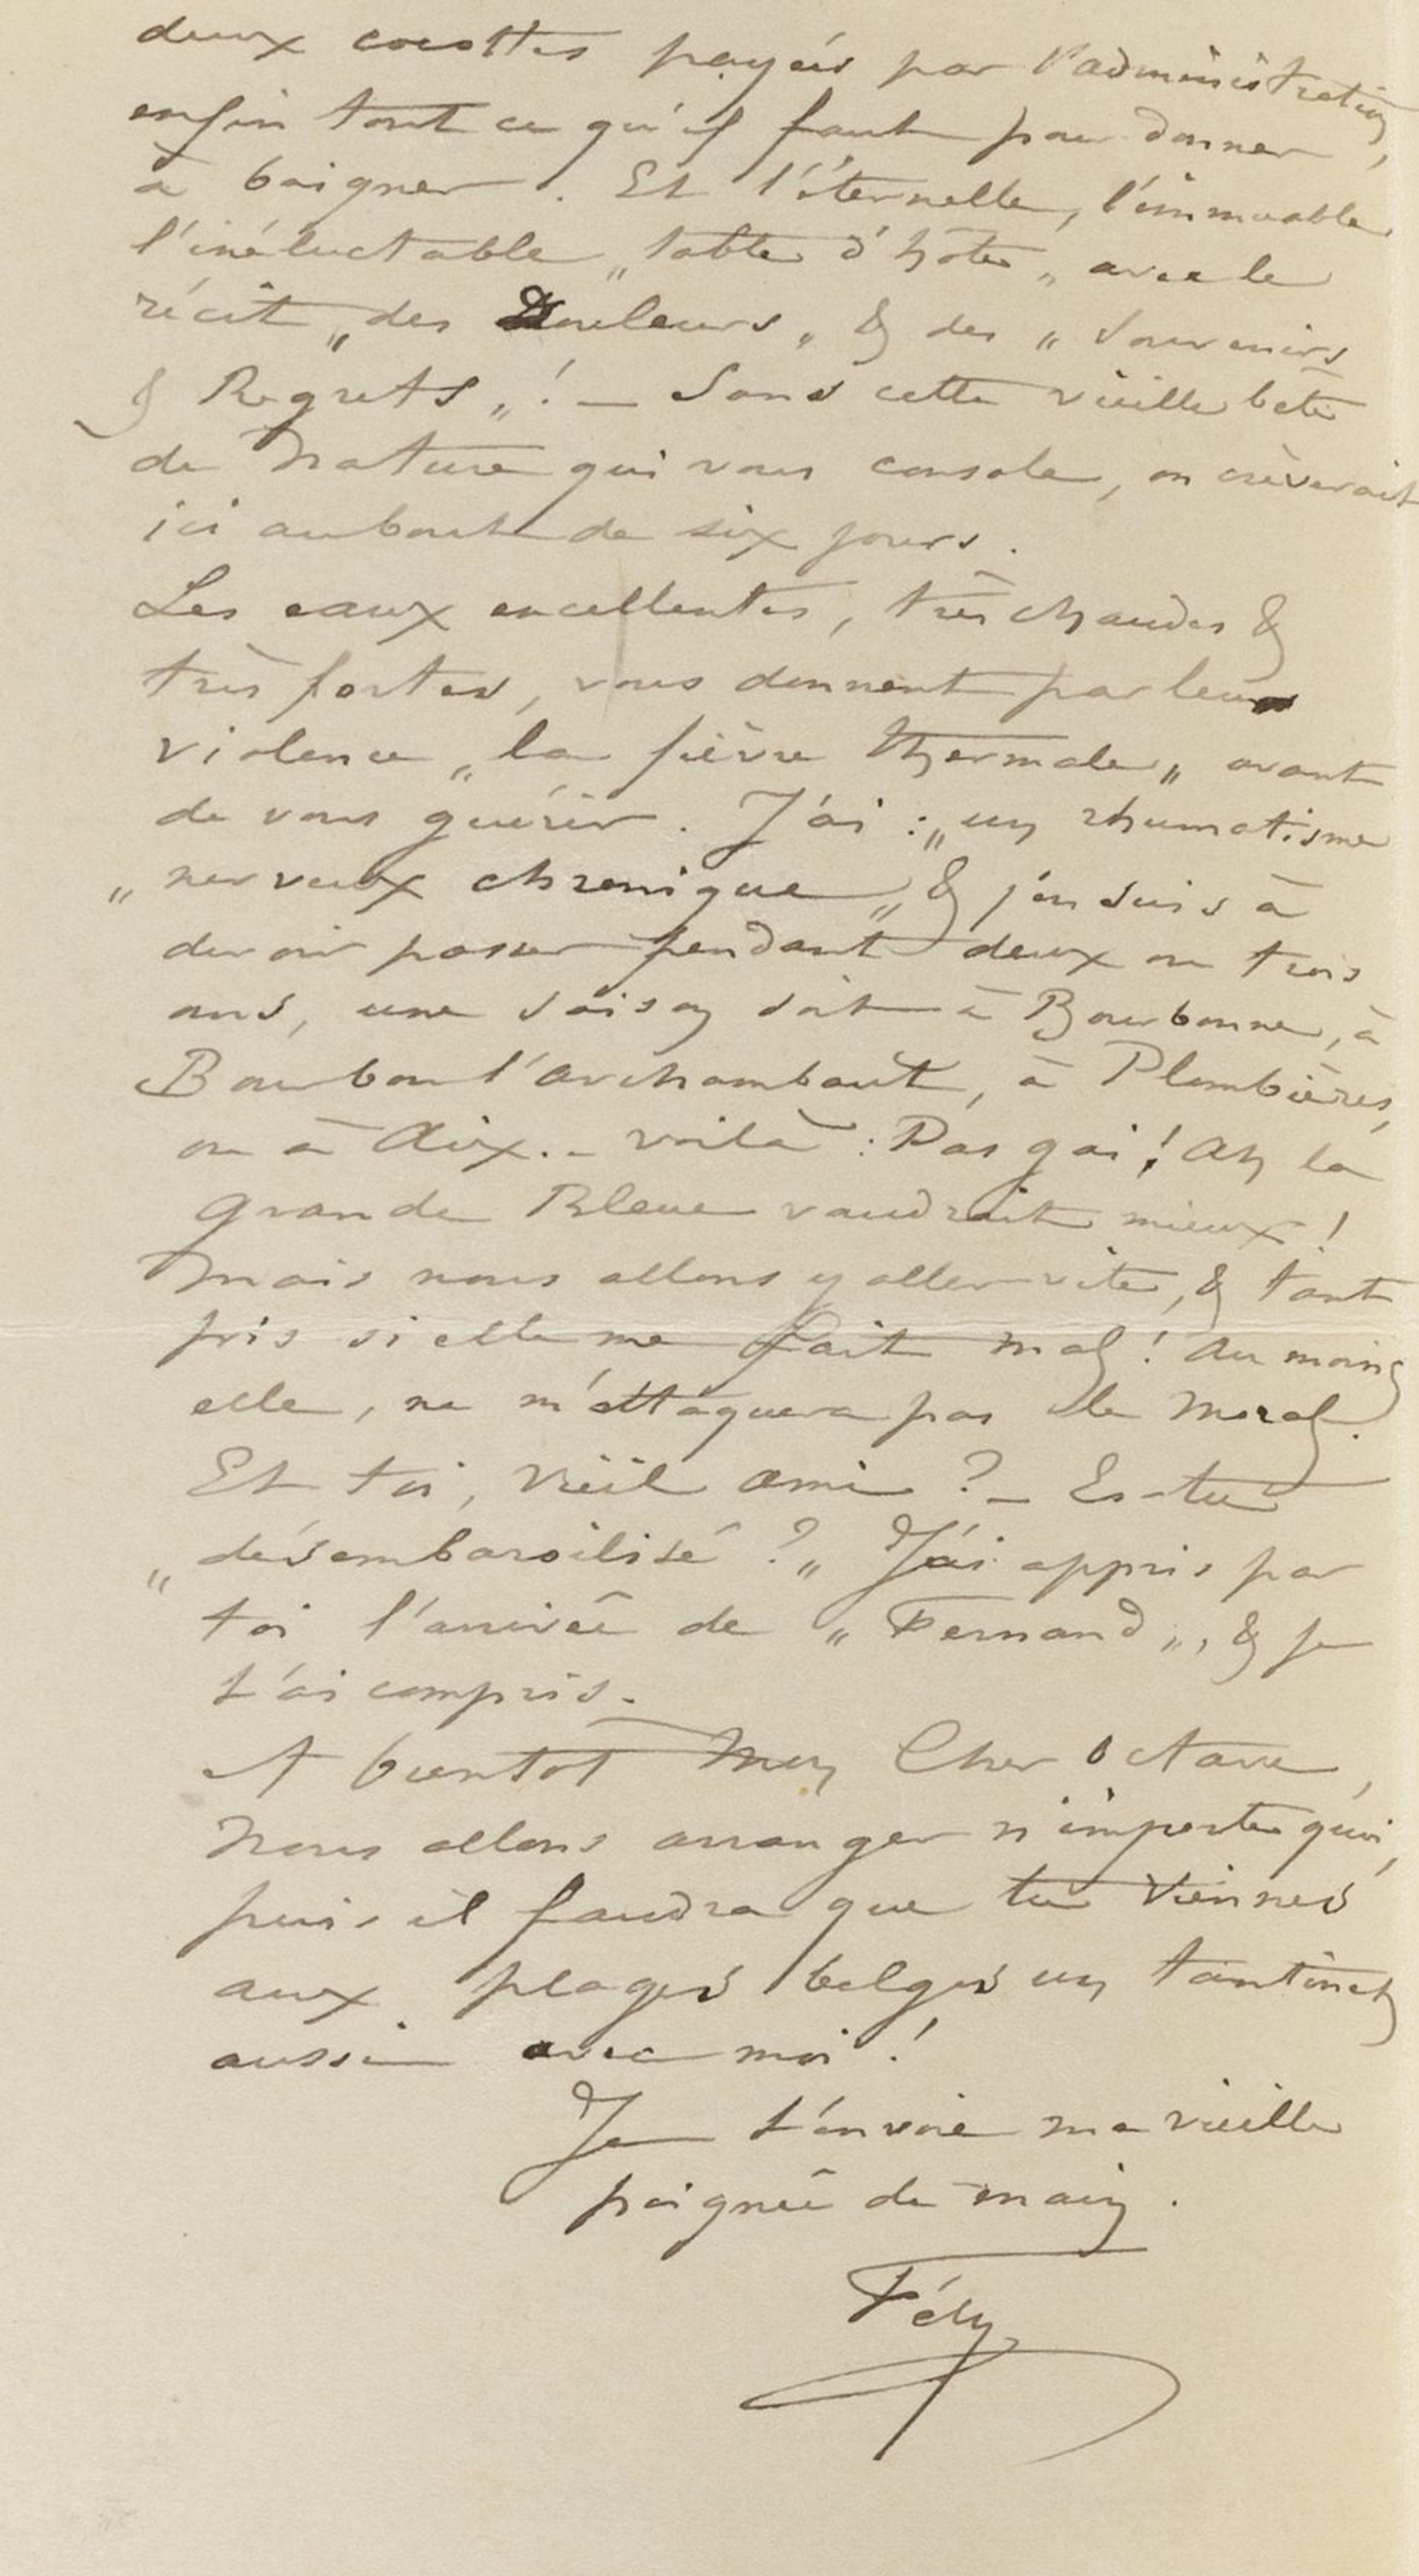 deux cocottes payées par l'administration,
enfin tout ce qu'il faut pour donner,
à baigner. Et l'éternelle, l'immuable,
l'inéluctable „table d'hôte„ avec le
récit „des Douleurs„ & des „Souvenirs
& Regrets„! — Sans cette vieille bête
de Nature qui vous console, on crèverait
ici au bout de six jours.
Les eaux excellentes, très chaudes &
très fortes, vous donnent par leur
violence „la fièvre thermale„ avant
de vous guérir. J'ai : „un rhumatisme
„nerveux chronique„ & j'en suis à
devoir passer pendant deux ou trois
ans, une saison soit à Bourbonne, à
Bourbon l'archambaut, à Plombières,
ou à Aix. — voilà : Pas gai! Ah la
grande Bleue vaudrait mieux!
Mais nous allons y aller vite, & tant
pis si elle me fait mal! Au moins
elle, ne m'attaquera pas le moral.
Et toi, vieil ami ? — Es-tu
„désembarsilisé ?„ J'ai appris par
toi l'arrivée de „Fernand„, & je
t'ai compris.
A bientot Mon Cher Octave,
Nous allons arranger n'importe quoi,
puis il faudra que tu viennes
aux plages belges un tantinet
aussi avec moi!
Je t'envoie ma vieille
poignée de main.
Fély